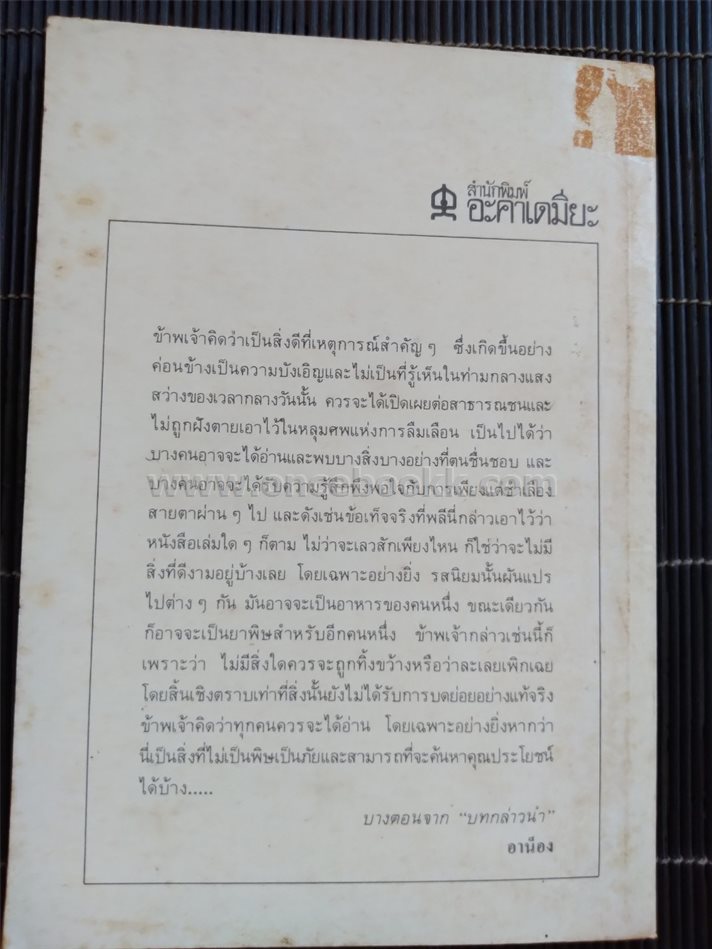 สำนักพิมพ์
อะคาเดมิยะ
ข้าพเจ้าคิดว่าเป็นสิ่งดีที่เหตุการณ์สำคัญ ๆ ซึ่งเกิดขึ้นอย่าง
ค่อนข้างเป็นความบังเอิญและไม่เป็นที่รู้เห็นในท่ามกลางแสง
สว่างของเวลากลางวันนั้น ควรจะได้เปิดเผยต่อสาธารณชนและ
ไม่ถูกฝังตายเอาไว้ในหลุมศพแห่งการลืมเลือน เป็นไปได้ว่า
บางคนอาจจะได้อ่านและพบบางสิ่งบางอย่างที่ตนชื่นชอบ และ
บางคนอาจจะได้รับความรู้สึกพึงพอใจกับการเพียงแต่ชำเลือง
สายตาผ่าน ๆ ไป และดังเช่นข้อเท็จจริงที่พลีนี่กล่าวเอาไว้ว่า
หนังสือเล่มใด ๆ ก็ตาม ไม่ว่าจะเลวสักเพียงไหน ก็ใช่ว่าจะไม่มี
สิ่งที่ดีงามอยู่บ้างเลย โดยเฉพาะอย่างยิ่ง รสนิยมนั้นผันแปร
ไปต่าง ๆ กัน มันอาจจะเป็นอาหารของคนหนึ่ง ขณะเดียวกัน
ก็อาจจะเป็นยาพิษสำหรับอีกคนหนึ่ง ข้าพเจ้ากล่าวเช่นนี้ก็
เพราะว่า ไม่มีสิ่งใดควรจะถูกทิ้งขว้างหรือว่าละเลยเพิกเฉย
โดยสิ้นเชิงตราบเท่าที่สิ่งนั้นยังไม่ได้รับการบดย่อยอย่างแท้จริง
ข้าพเจ้าคิดว่าทุกคนควรจะได้อ่าน โดยเฉพาะอย่างยิ่งหากว่า
นี่เป็นสิ่งที่ไม่เป็นพิษเป็นภัยและสามารถที่จะค้นหาคุณประโยชน์
ได้บ้าง.....
บางตอนจาก "บทกล่าวนำ"
อาน็อง